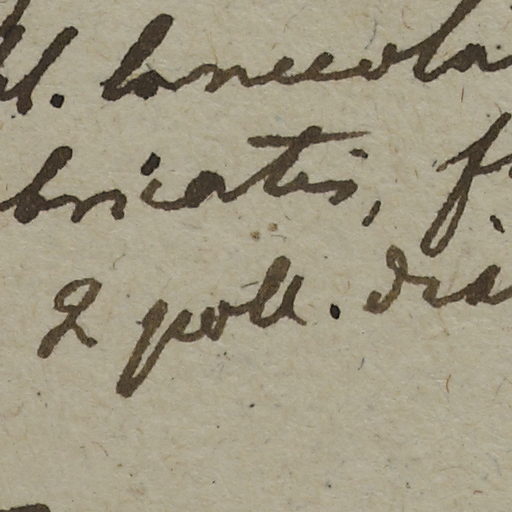 bl. lanceola
bricatis, f
2 poll. dia